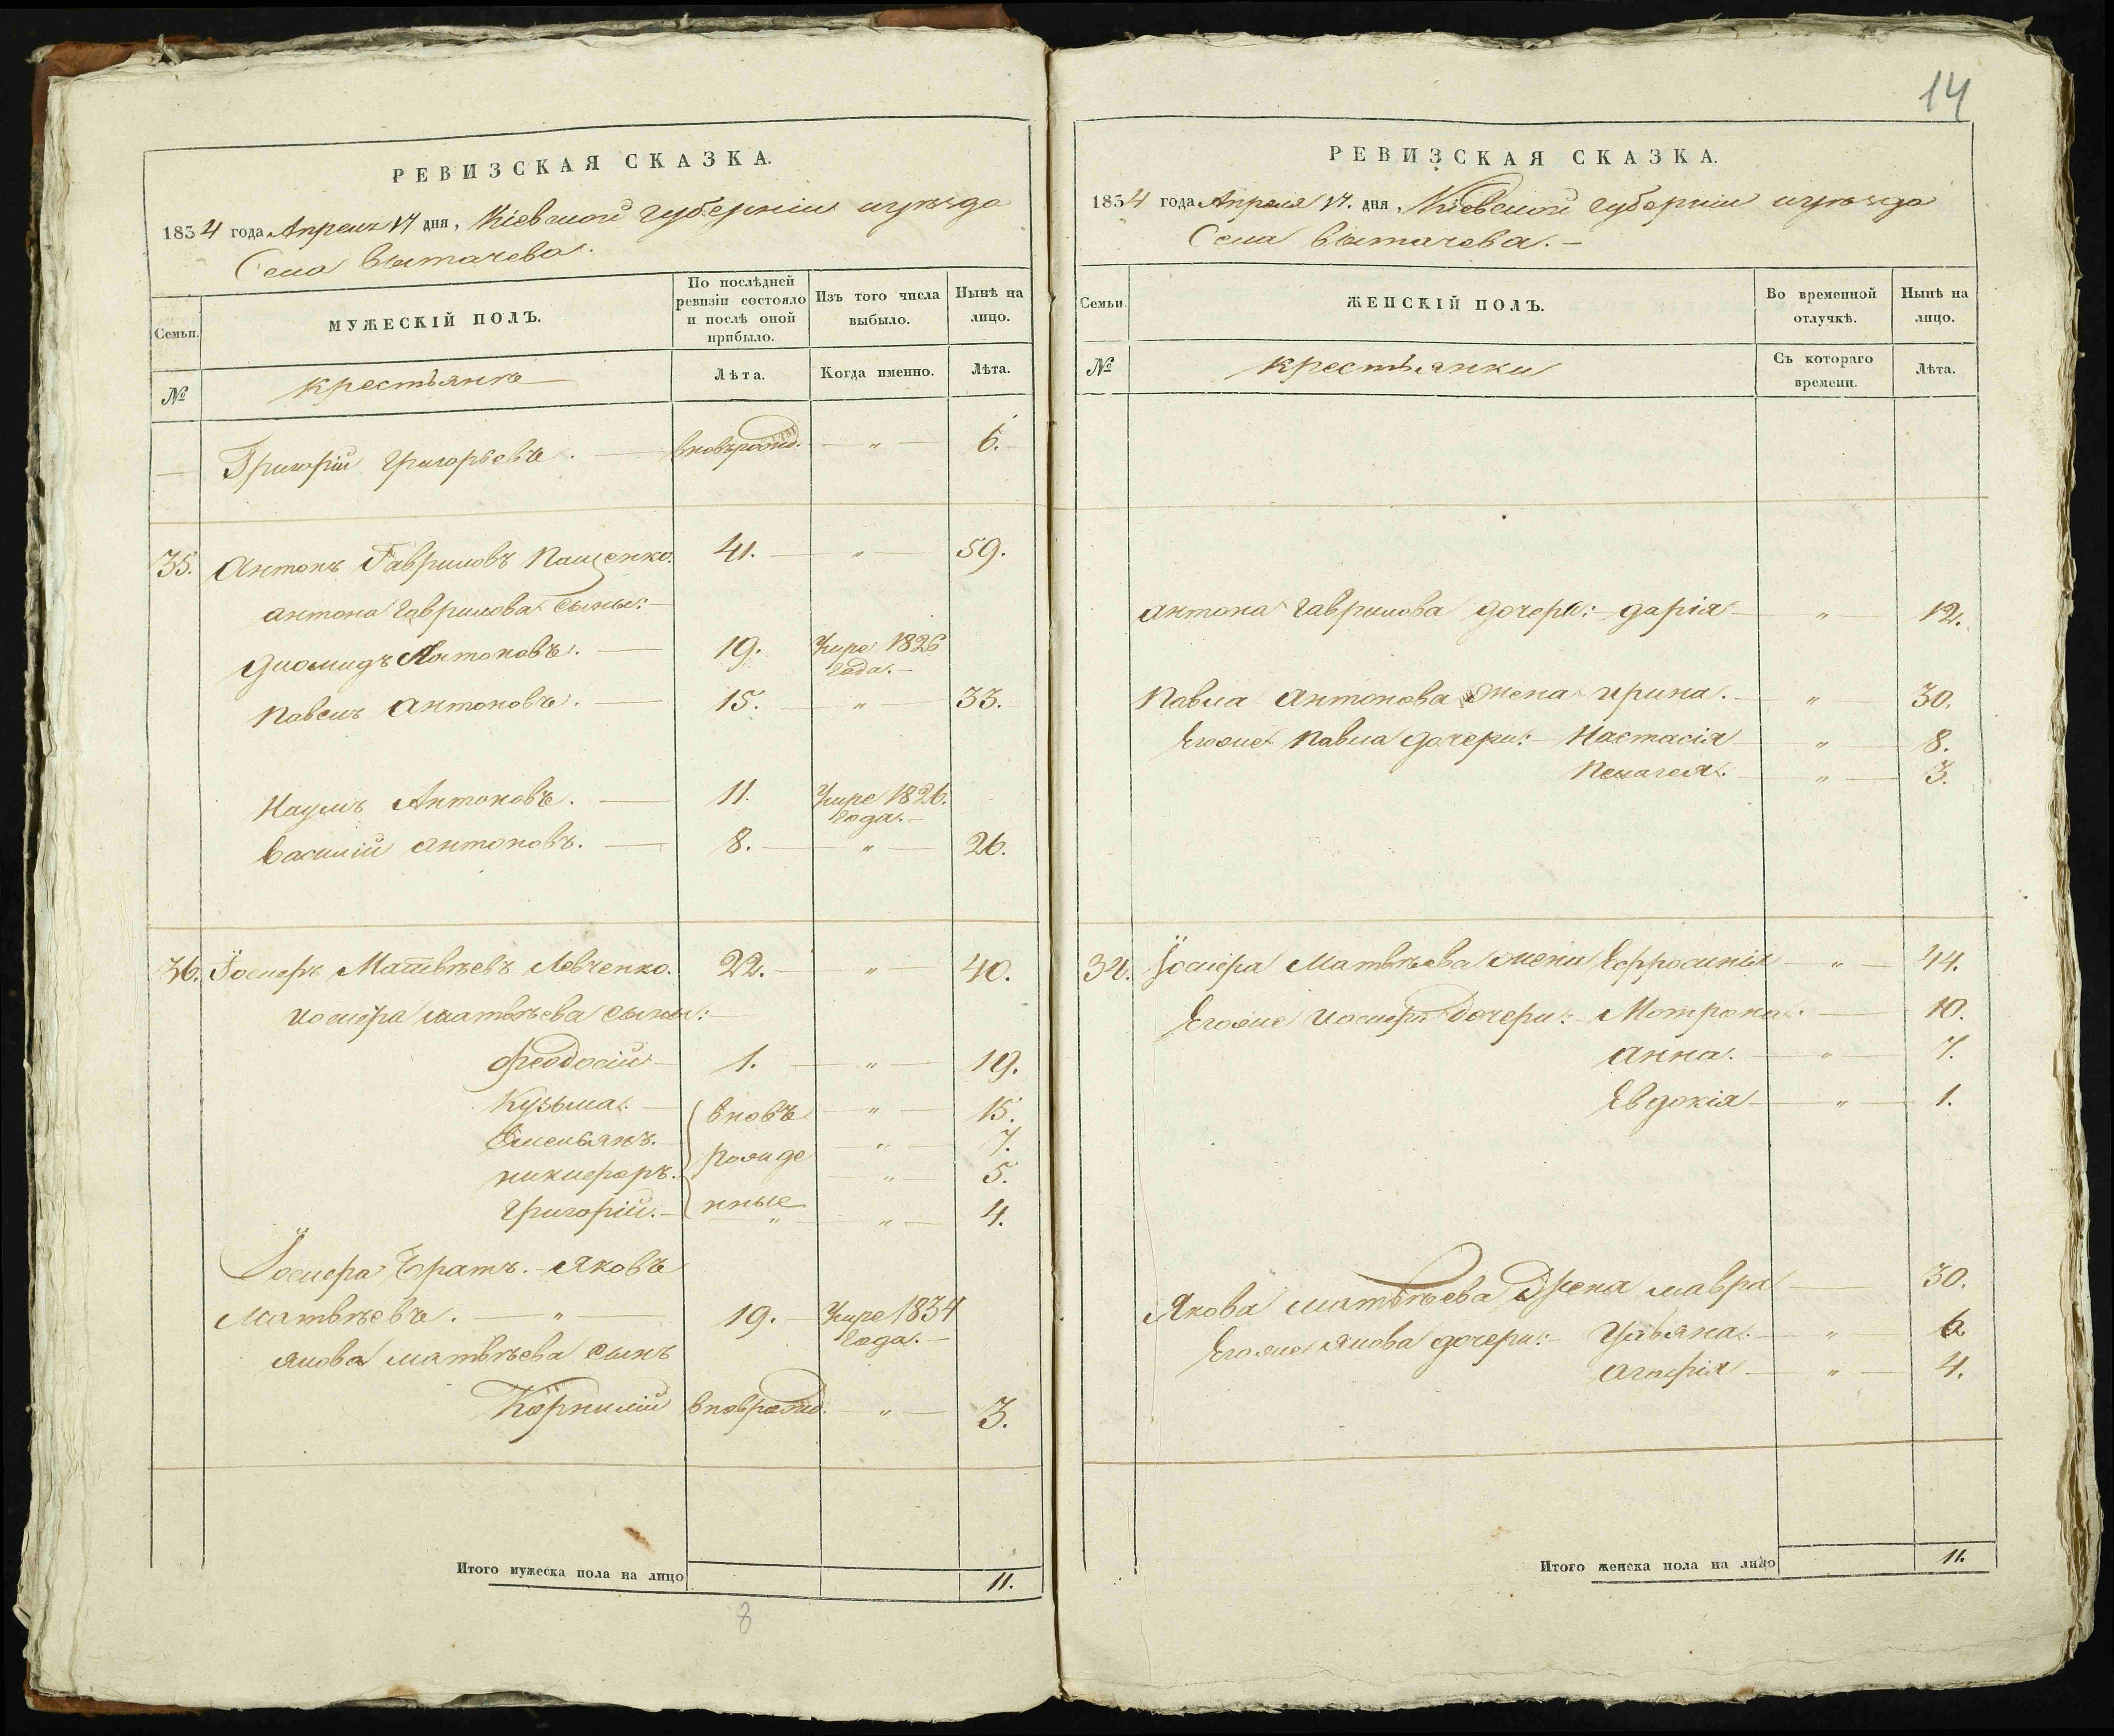 РЕВИЗСКАЯ СКАЗКА.
1834 года Апреля 17 дня, Кіевской губерніи и уѣзда
Села Вытачева.
Семьи. МУЖЕСКІЙ ПОЛЪ. По послѣдней ревизіи состояло и послѣ оной прибыло. Изъ того числа выбыло. Нынѣ на лицо.
№ крестьянъ Лѣта. Когда именно. Лѣта.
— Григорій Григорьевъ. — вновьрожд. — „ — 6.
35. Антонъ Гавриловъ Пащенко. 41. — „ — 59.
Антона Гаврилова сыны:
Диомидъ Антоновъ. — 19. Умре 1826
года. —
Павелъ Антоновъ. — 15. — „ — 33.
Наумъ Антоновъ. — 11. Умре 1826.
года. —
Василій Антоновъ. — 8. — „ — 26.
36. Іосифъ Матвѣевъ Левченко. 22. — „ — 40.
Иосифа Матвѣева сыны:
Феодосій — 1. — „ — 19.
Кузьма. — вновь — „ — 15.
Емельянъ. рожде — „ — 7.
Никифоръ. — „ — 5.
Григорій. — нные „ — „ — 4.
Іосифа братъ. — Яковъ
Матвѣевъ. — „ — 19. — Умре 1834
года. —
Якова Матвѣева сынъ
Корнилій вноврожд. — „ — 3.
Итого мужеска пола на лицо 11.
8
14
РЕВИЗСКАЯ СКАЗКА.
1834 года Апреля 17. дня, Кіевской губерніи и уѣзда
Села Вытачева. —
Семьи. ЖЕНСКІЙ ПОЛЪ. Во временной отлучкѣ. Нынѣ на лицо.
№ крестьянки Съ котораго времени. Лѣта.
Антона Гаврилова дочера: Дарія — „ — 12.
Павла Антонова жена Ирина. — „ — 30.
Егоже Павла дочери: — Настасія — „ — 8.
Пелагея. — „ — 3.
Іосифа Матвѣева жена Ефросинія — „ — 44.
Егоже Иосифа дочери: — Мотрона. — 10.
Анна. — „ — 7.
Евдокія — „ — 1.
Якова Матвѣева жена Мавра — 30.
Егоже Якова дочери: — Ульяна. — „ — 6
Агафія — „ — 4.
Итого женска пола на лицо 11.